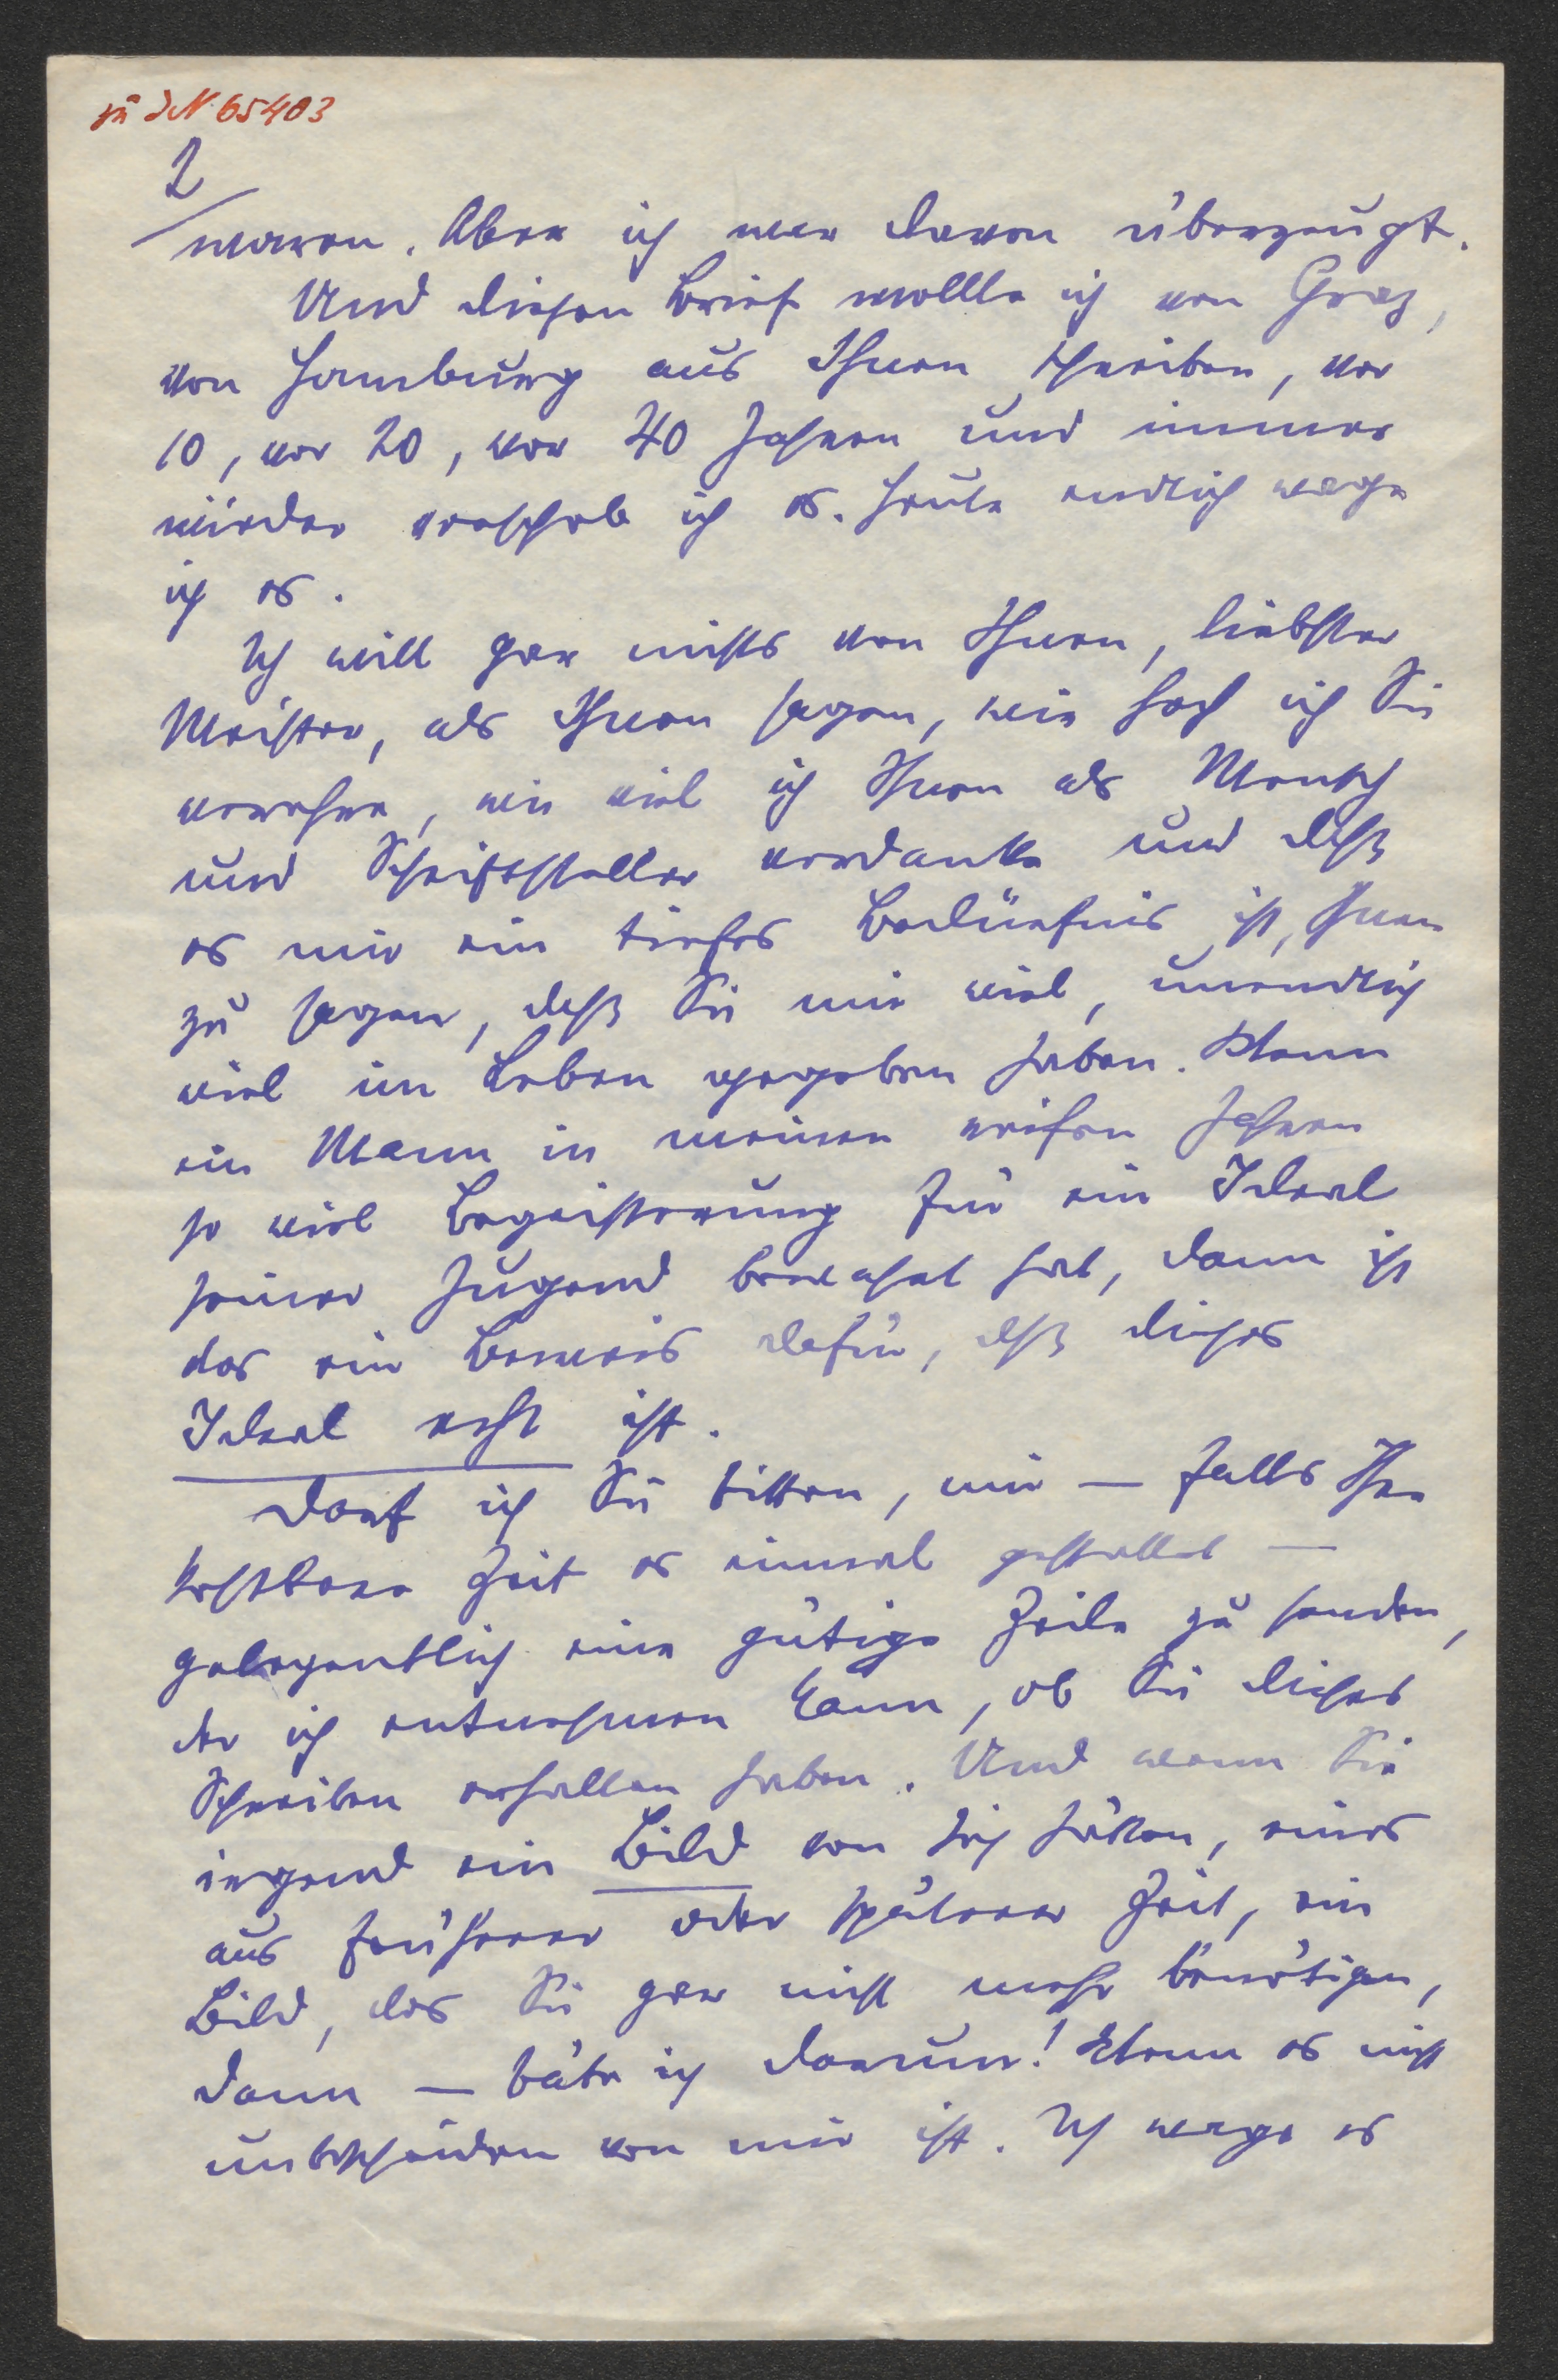 zu IN 65403
2
waren. Aber ich war davon überzeugt.
Und diesen Brief wollte ich von Graz,
von Hamburg aus Ihnen schreiben, vor
10, vor 20, vor 40 Jahren und immer
wieder verschob ich es. Heute endlich wage
ich es.
Ich will gar nichts von Ihnen, liebster
Meister, als Ihnen sagen, wie hoch ich Sie
verehre, wie viel ich Ihnen als Mensch
und Schriftsteller verdanke und daß
es mir ein tiefes Bedürfnis ist, Ihnen
zu sagen, daß Sie mir viel, unendlich
viel im Leben gegeben haben. Wenn
ein Mann in meinen reifen Jahren
so viel Begeisterung für ein Ideal
seiner Jugend bewahrt hat, dann ist
das ein Beweis dafür, daß dieses
Ideal echt ist.
Darf ich Sie bitten, mir — falls Ihre
kostbare Zeit es einmal gestattet —
gelegentlich eine gütige Zeile zu senden,
der ich entnehmen kann, ob Sie dieses
Schreiben erhalten haben. Und wenn Sie
irgend ein Bild von sich hätten, eines
aus früherer oder späterer Zeit, ein
Bild, das Sie gar nicht mehr benötigen,
dann — bäte ich darum! Wenn es nicht
unbescheiden von mir ist. Ich wage es